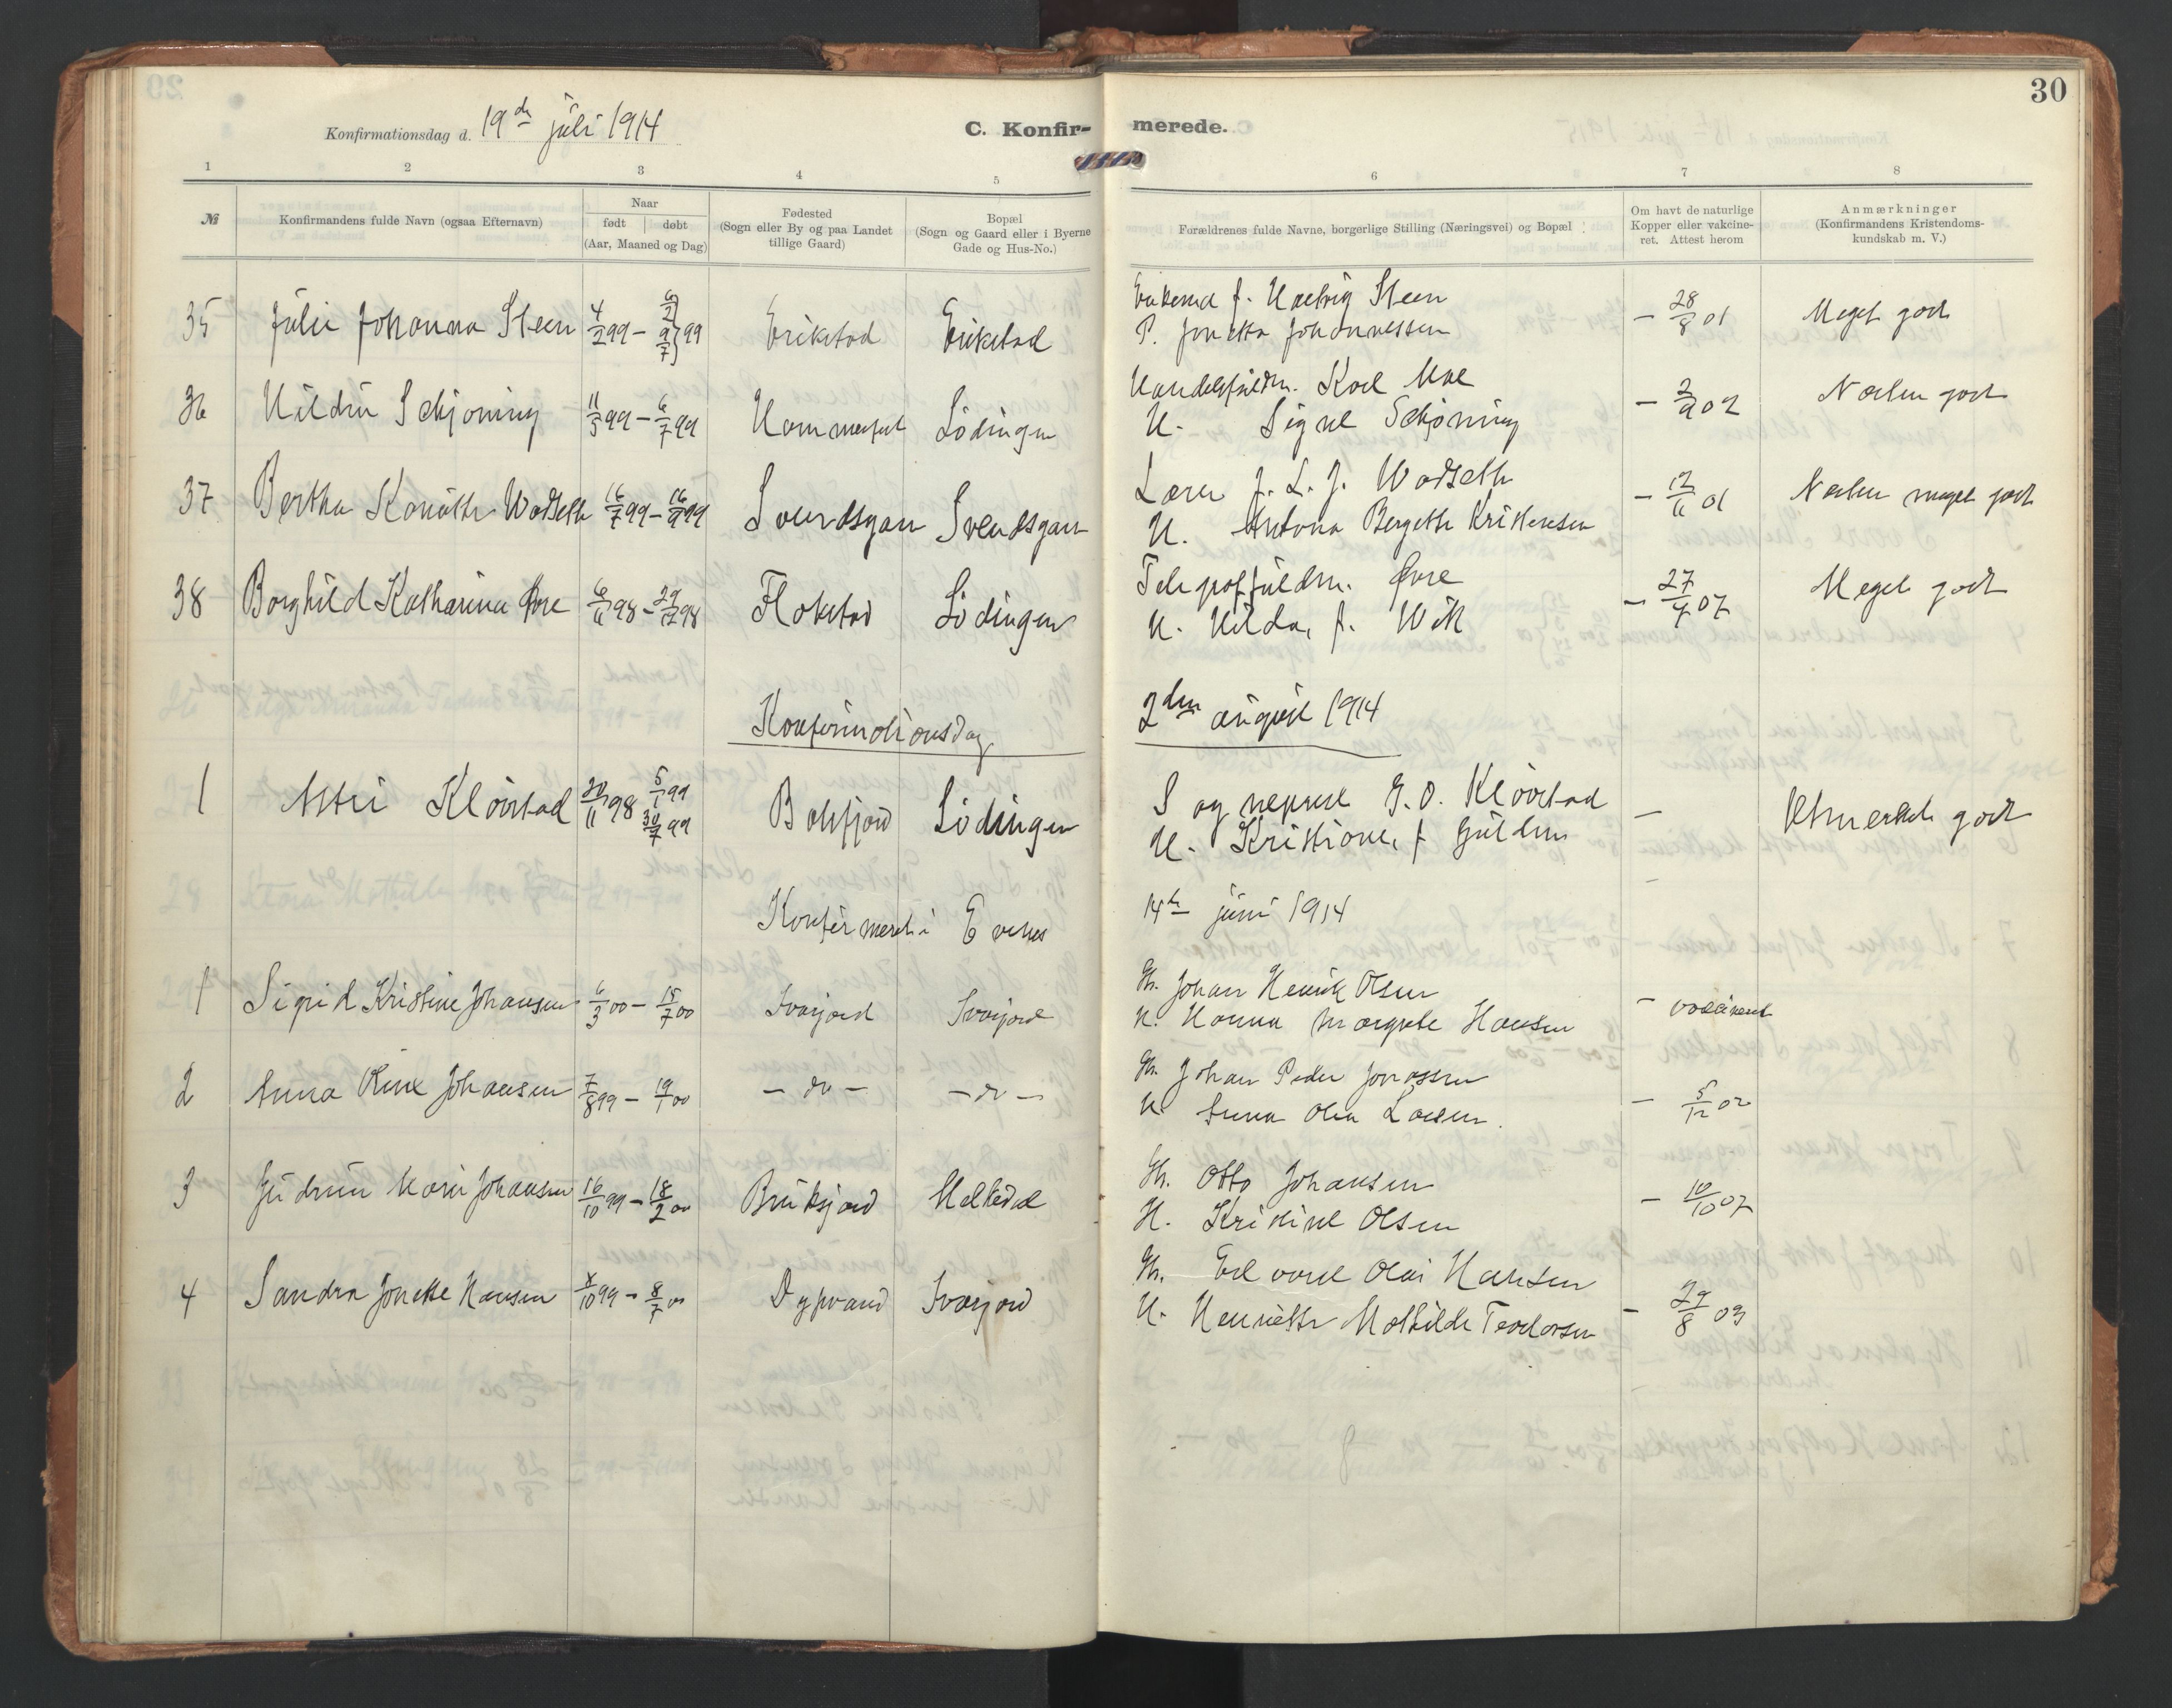 30
Konfirmationsdag d. 19de juli 1914
C. Konfir-merede.
1 2 3 4 5 6 7 8
№
Konfirmandens fulde Navn (ogsaa Efternavn)
Naar
født døbt
(Aar, Maaned og Dag)
Fødested
(Sogn eller By og paa Landet
tillige Gaard)
Bopæl
(Sogn og Gaard eller i Byerne
Gade og Hus-No.)
Forældrenes fulde Navne, borgerlige Stilling (Næringsvei) og Bopæl
Om havt de naturlige
Kopper eller vakcine-
ret. Attest herom
Anmærkninger
(Konfirmandens Kristendoms-
kundskab m. V.)
35 Julie Johanna Steen 4/2 99 – 99 Erikstad Erikstad
J. Hartvig Steen
P. Jonetta Johannessen
– 28/8 01 Meget godt
36 Hildur Schjoning 11/5 99 – 6/7 99 Hammerfest Lödingen
Handelsfuldm. Karl Moe
H. Signe Schjöning
– 2/9 02 Næsten godt
37 Bertha Wadseth 16/7 99 – 16/9 99 Svendsgam Svendsgam
Lærer J. L. J. Wadseth
H. Antona Bergette Kristensen
– 12/11 01 Næsten meget godt
38 Borghild Katharina Øvre 6/11 98 – 29/12 98 Flakstad Lödingen
Telegraffuldm. Øvre
H. Hilda, f. Wik
– 27/7 07 Meget godt
Konfirmationsdag 2den august 1914
1 Astri Klövstad 20/11 98 5/1 99
30/7 99
Lödingen
Sogneprest G. O. Klövstad
H. Kristiane, f. Guldem
– Udmerket godt
Konfirmert i Evenes 14de juni 1914
1 Sigrid Kristine Johansen 6/3 00 – 15/7 00 Svarjord Svarjord
Gm. Johan Henrik Olsen
H. Hanna Margrete Hansen
– vaksinert
2 Anna Oline Johansen 7/8 99 – 19/1 00 – do – – do –
Gm. Johan Peder Jonassen
H. Anna Olea Larsen.
– 5/12 02
3 Gudrun Marie Johansen 16/10 99 – 18/2 00
Gm. Otto Johansen
H. Kristine Olsen
– 10/10 07
4 Sandra Jonette Hansen 8/10 99 – 8/7 00 Dypvand Svarjord
Gm. Edvard Olai Hansen
H. Henriette Mathilde Teodorsen
– 29/8 03